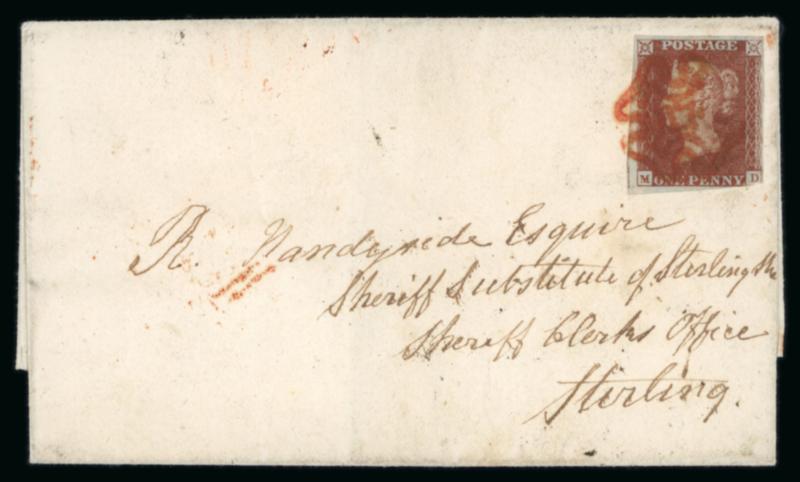 POSTAGE
M ONE PENNY D
R. Handyside Esquire
Sheriff Substitute of Sterling
Sheriff Clerks Office
Sterling.